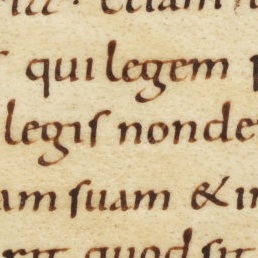 etiam
qui legem
legis non de
am suam & in
rit quod sit